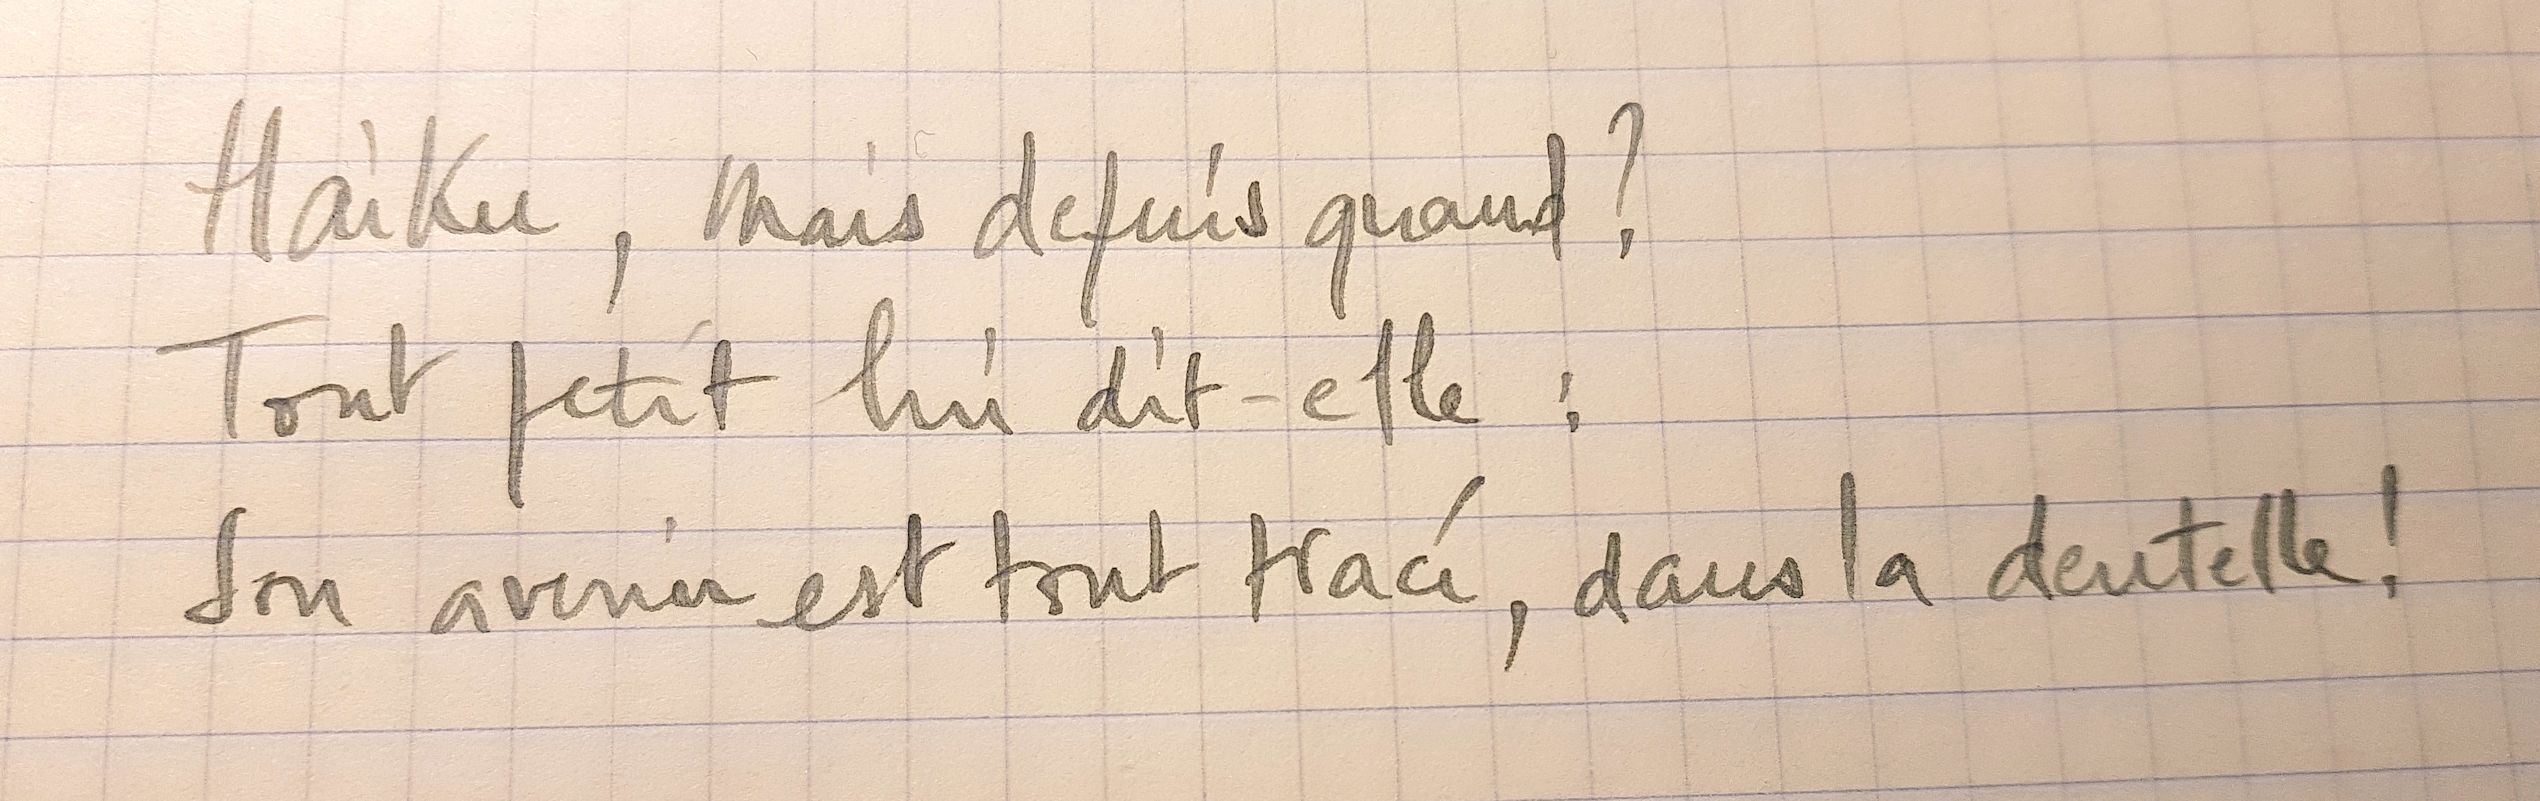 Haïku, mais depuis quand ?
Tout petit lui dit-elle :
Son avenir est tout tracé, dans la dentelle !